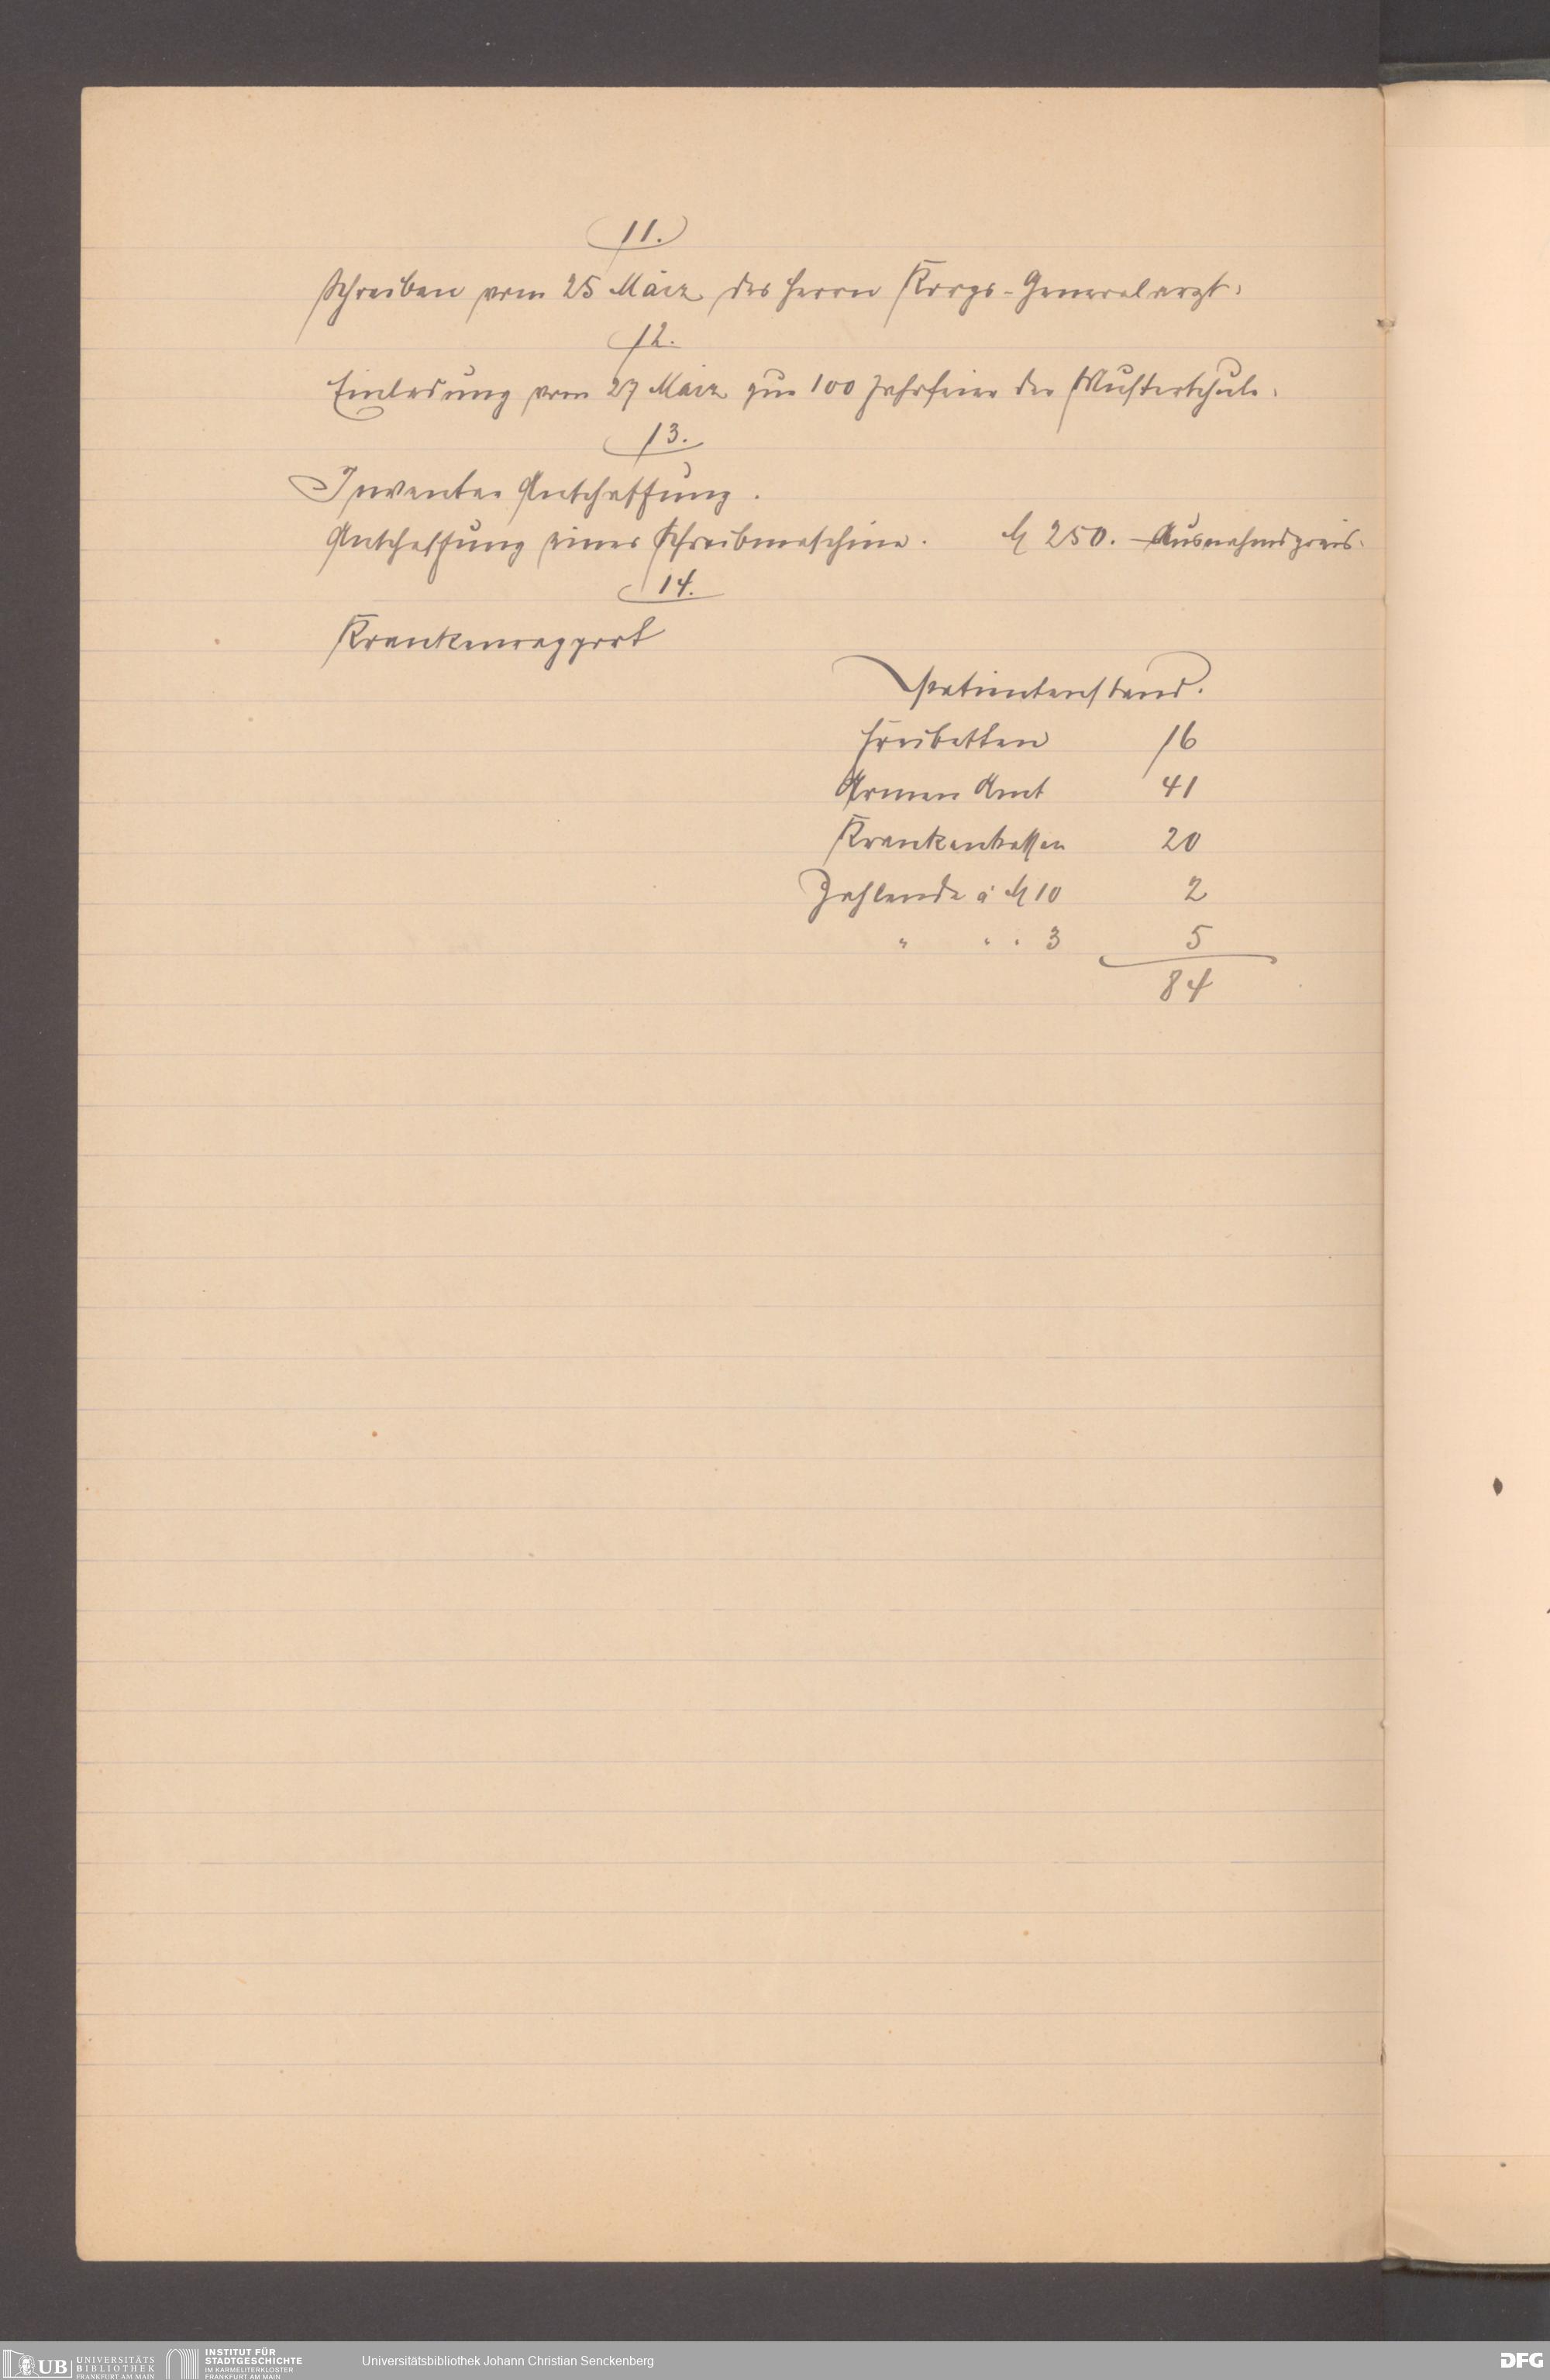 11.
Schreiben vom 25 März des Herrn Korps-Generalarzt.
12.
Einladung vom 27 März zur 100 Jahrfeier der Musterschule.
13.
Inventar Anschaffung.
Anschaffung einer Schreibmaschine. M 250.– Ausnahmspreis.
14.
Krankenrapport
Patientenstand.
Freibetten 16
Armen Amt 41
Krankenkassen 20
Zahlende à M 10 2
" " " 3 5
84
UB UNIVERSITÄTS BIBLIOTHEK FRANKFURT AM MAIN
INSTITUT FÜR STADTGESCHICHTE IM KARMELITERKLOSTER FRANKFURT AM MAIN
Universitätsbibliothek Johann Christian Senckenberg
DFG